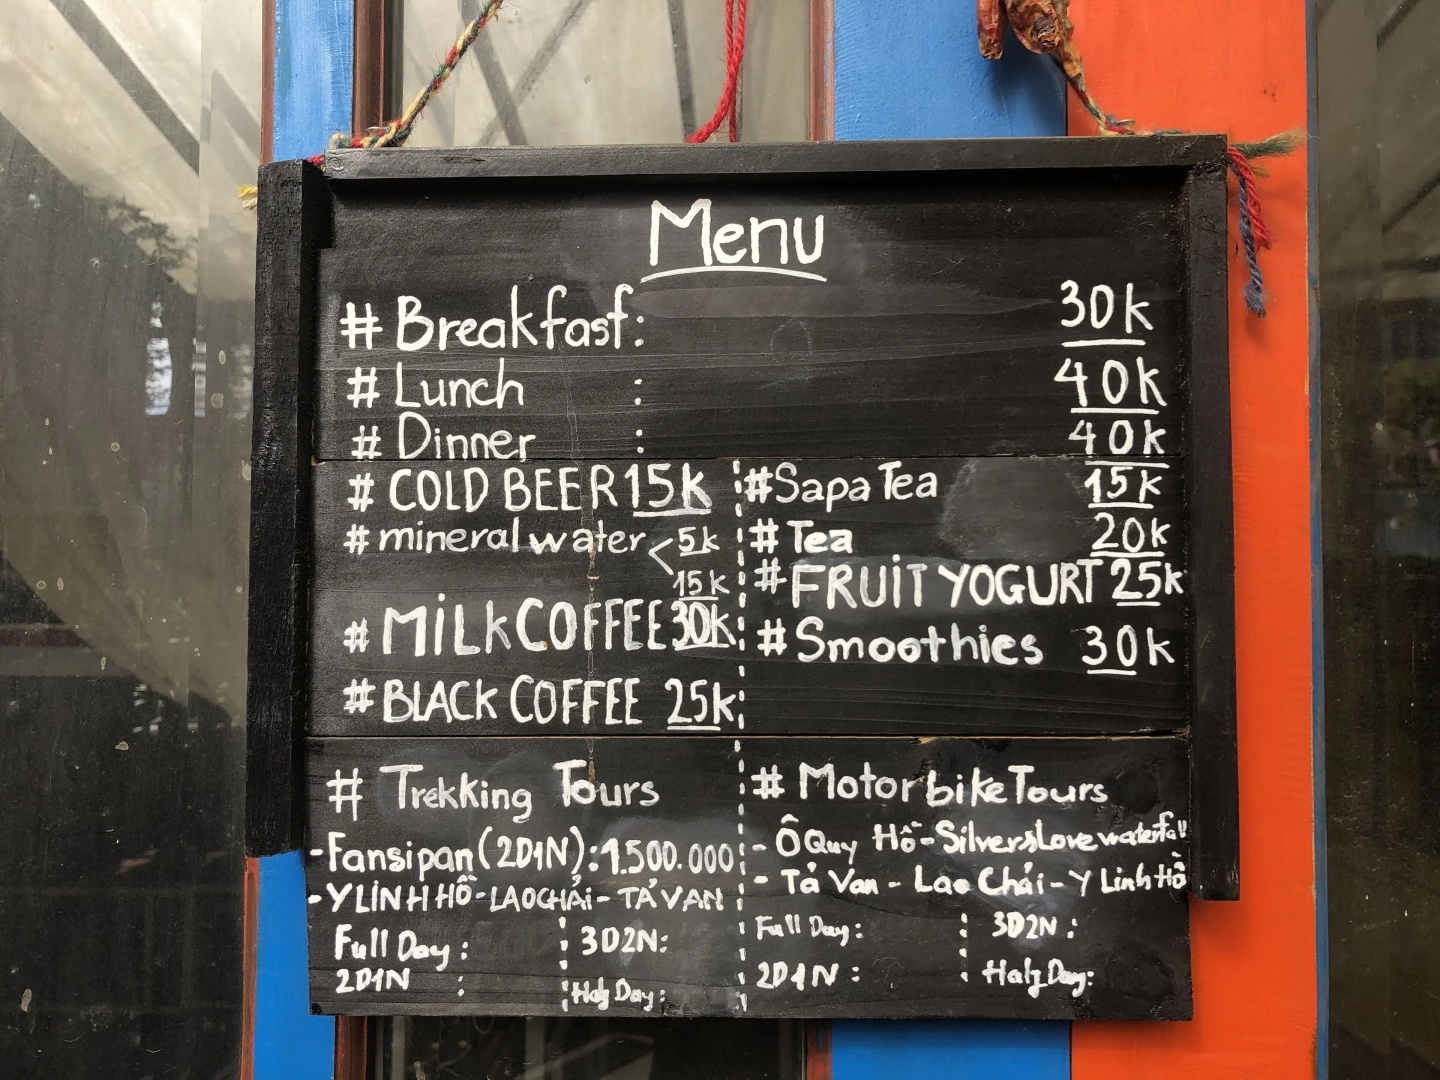 Menu
# Breakfast: 30k
# Lunch : 40k
# Dinner : 40k
# COLD BEER 15k
# mineral water 5k
15k
# MILK COFFEE 30k
# BLACK COFFEE 25k
# Sapa Tea 15k
# Tea 20k
# FRUIT YOGURT 25k
# Smoothies 30k
# Trekking Tours
- Fansipan (2D1N): 1.500.000
- Y LINH HỒ - LAOCHẢI - TẢ VAN
Full Day : 3D2N:
2D1N : Half Day:
# Motorbike Tours
- Ô Quy Hồ - Silvers Love waterfall
- Tả Van - Lao Chải - Y Linh Hồ
Full Day : 3D2N :
2D1N : Half Day: